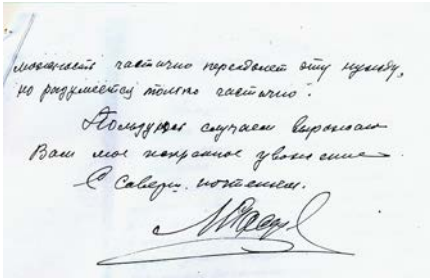 возможность частично перекроет эту нужду,
но разумеется только частично.
Пользуюсь случаем выразить
Вам мое искреннее уважение.
С соверш. почтением.